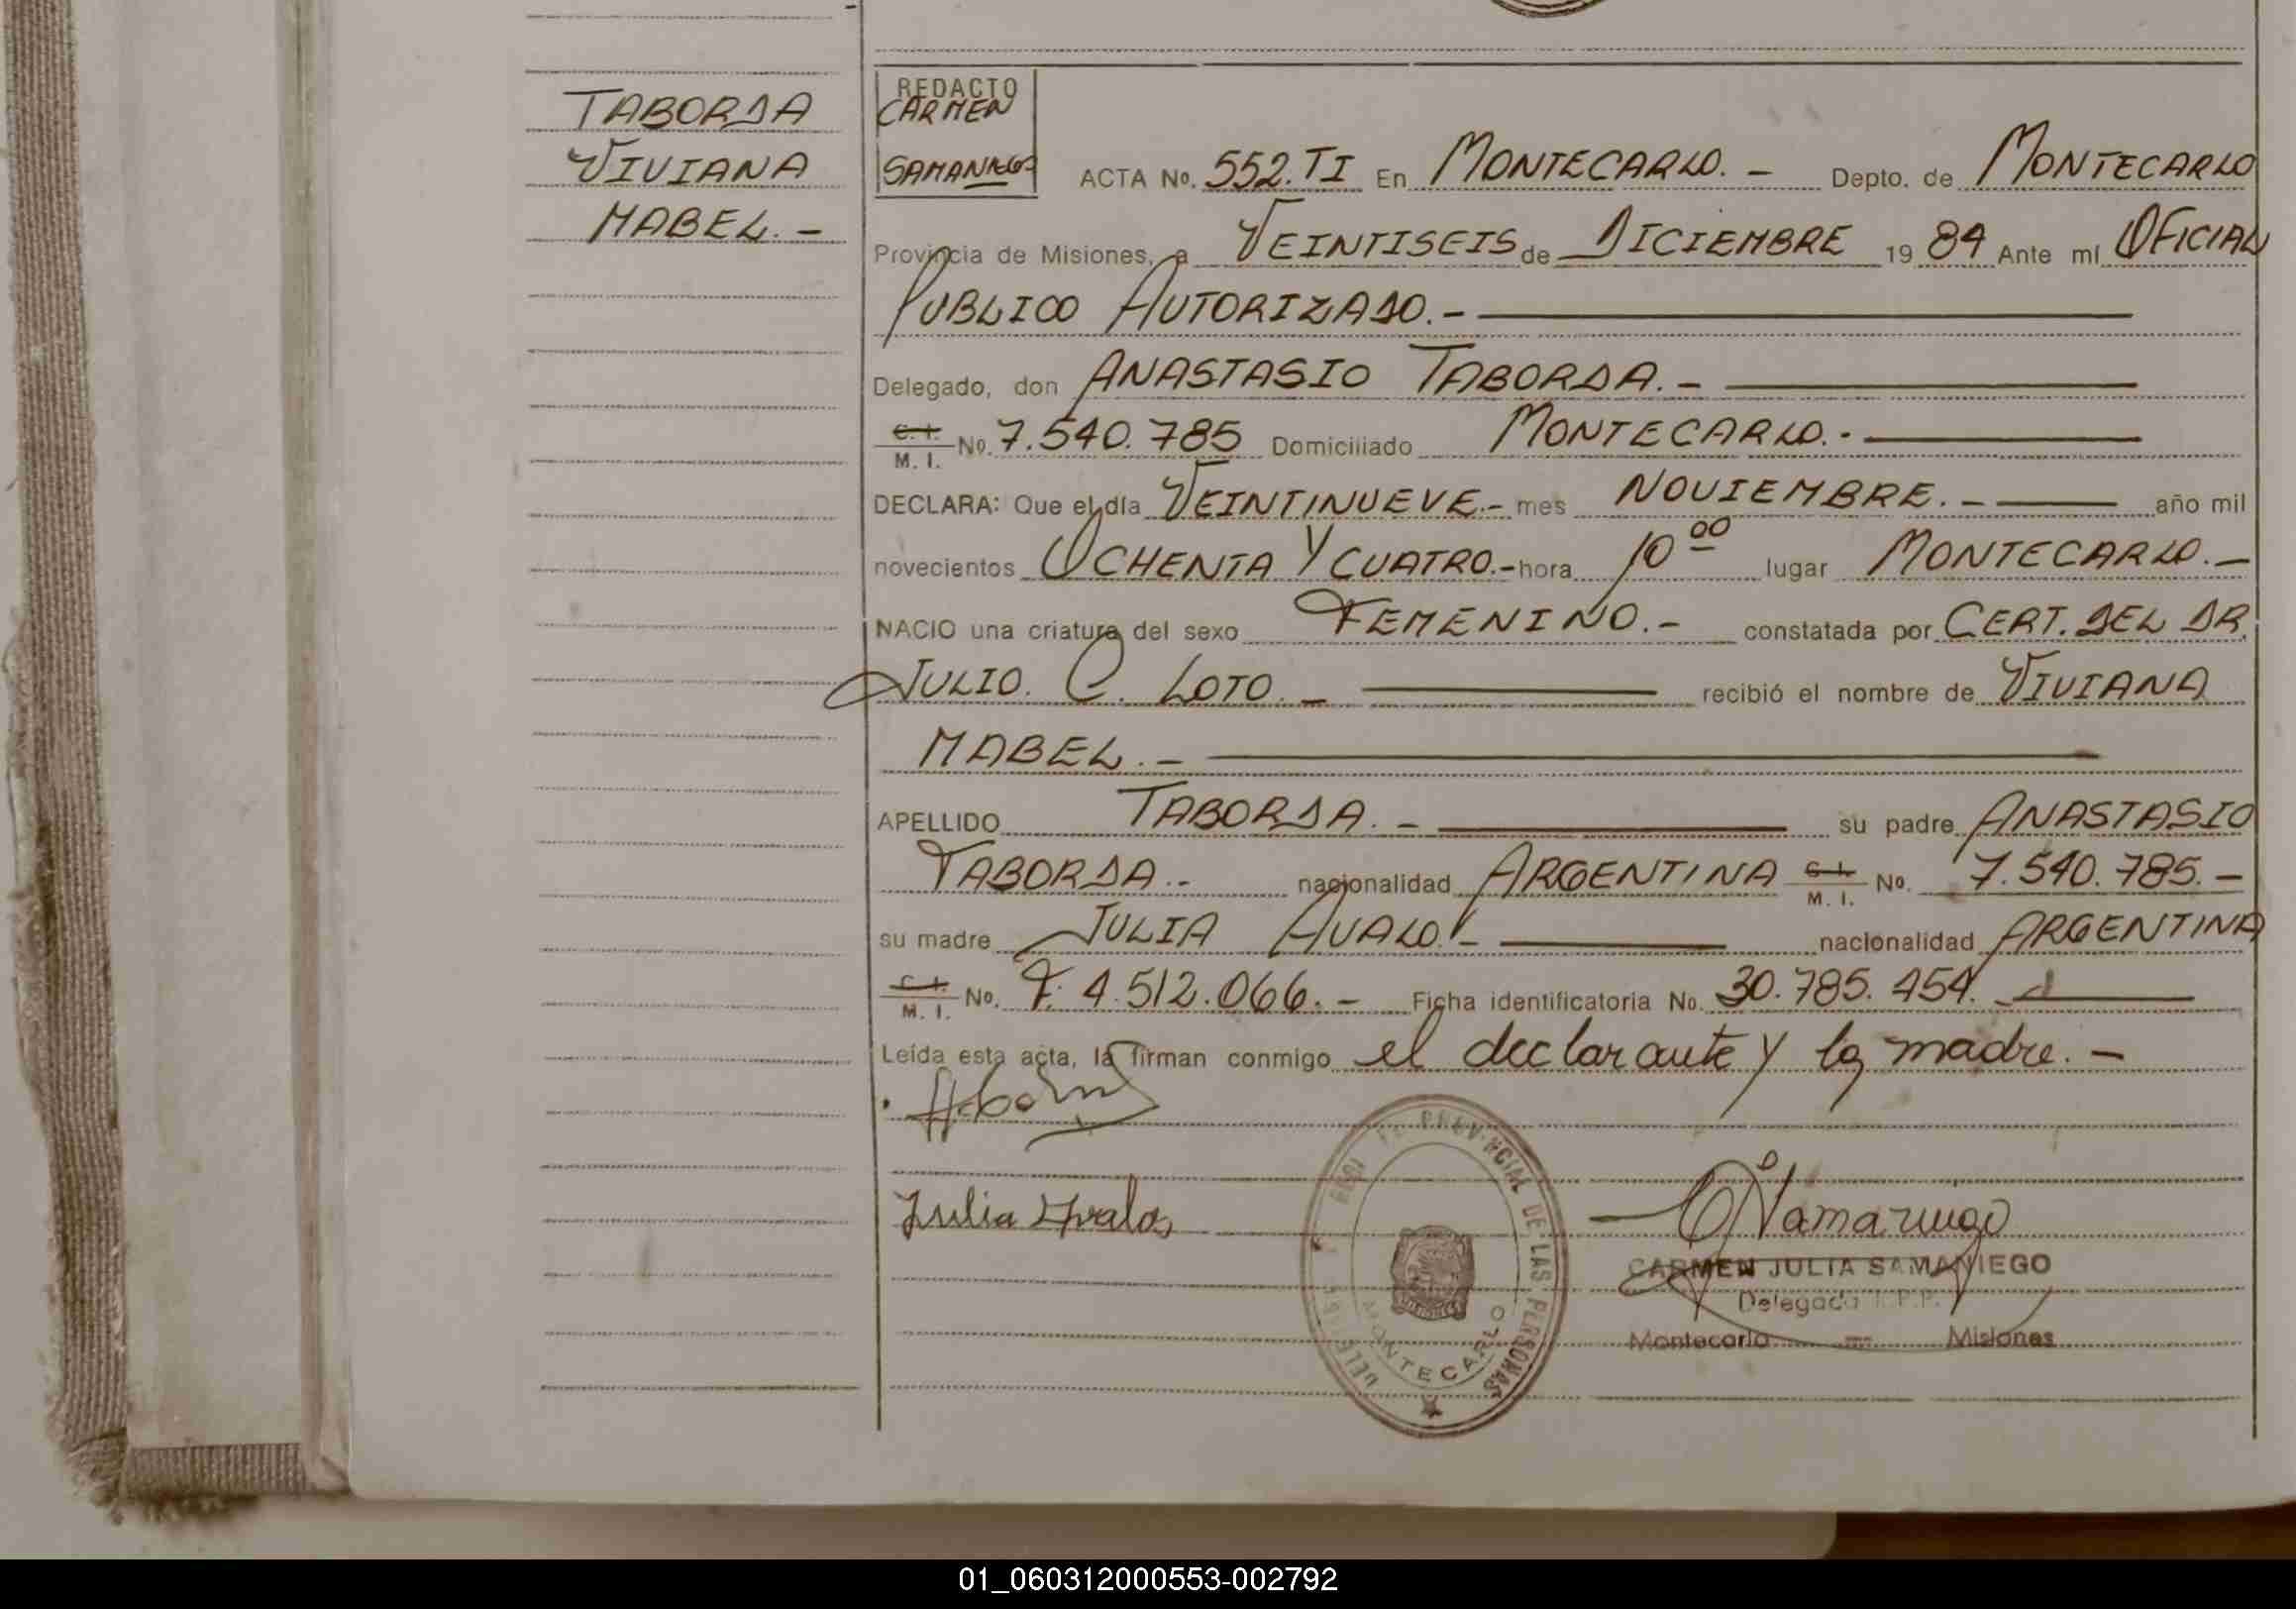 TABORDA
VIVIANA
MABEL.-
REDACTO
CARMEN
SAMANIEGO
ACTA No. 552.TI En MONTECARLO.- Depto. de MONTECARLO
Provincia de Misiones, a VEINTISEIS de DICIEMBRE 1984 Ante mí OFICIAL
PUBLICO AUTORIZADO.-
Delegado, don ANASTASIO TABORDA.-
C. I. M. I. No. 7.540.785 Domiciliado MONTECARLO.-
DECLARA: Que el día VEINTINUEVE.- mes NOVIEMBRE.- año mil
novecientos OCHENTA Y CUATRO.- hora 10 00 lugar MONTECARLO.-
NACIO una criatura del sexo FEMENINO.- constatada por CERT. DEL DR.
JULIO. C. LOTO.- recibió el nombre de VIVIANA
MABEL.-
APELLIDO TABORDA.- su padre ANASTASIO
TABORDA.- nacionalidad ARGENTINA C. I. M. I. No. 7.540.785.-
su madre JULIA AVALO.- nacionalidad ARGENTINA
C. I. M. I. No. F. 4.512.066.- Ficha identificatoria No. 30.785.454.
Leída esta acta, la firman conmigo el declarante y la madre.-
Julia Avalos
PROVINCIAL DE LAS PERSONAS
MONTECARLO
CARMEN JULIA SAMANIEGO
Delegada R.P.P.
Montecarlo - Misiones
01_060312000553-002792